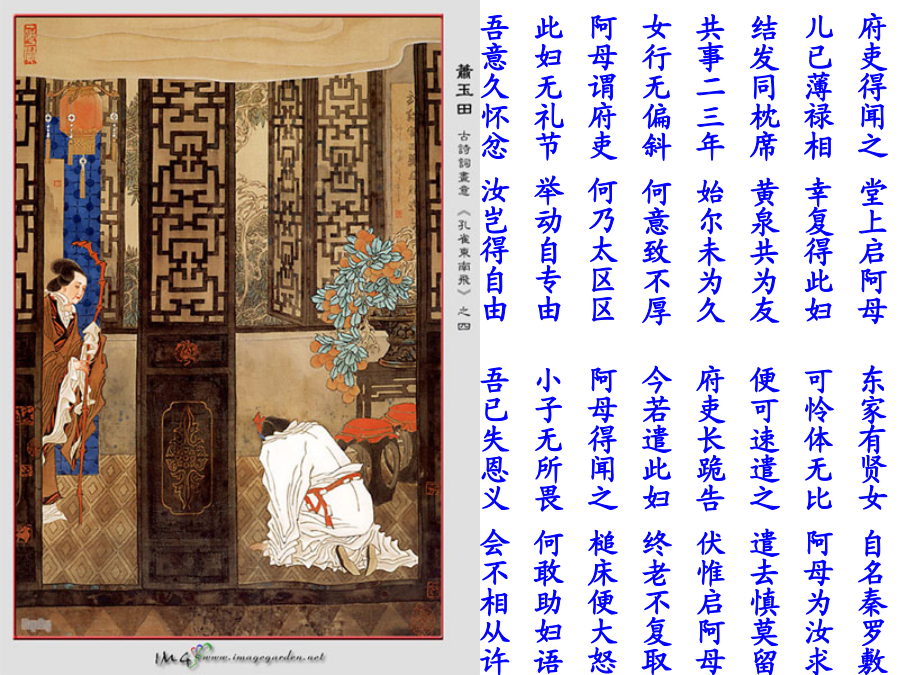 府吏得闻之 堂上启阿母
儿已薄禄相 幸复得此妇
结发同枕席 黄泉共为友
共事二三年 始尔未为久
女行无偏斜 何意致不厚
阿母谓府吏 何乃太区区
此妇无礼节 举动自专由
吾意久怀忿 汝岂得自由
东家有贤女 自名秦罗敷
可怜体无比 阿母为汝求
便可速遣之 遣去慎莫留
府吏长跪告 伏惟启阿母
今若遣此妇 终老不复取
阿母得闻之 槌床便大怒
小子无所畏 何敢助妇语
吾已失恩义 会不相从许
蕭玉田 古詩詞畫意 《孔雀東南飛》之四
IMG www.imagegarden.net